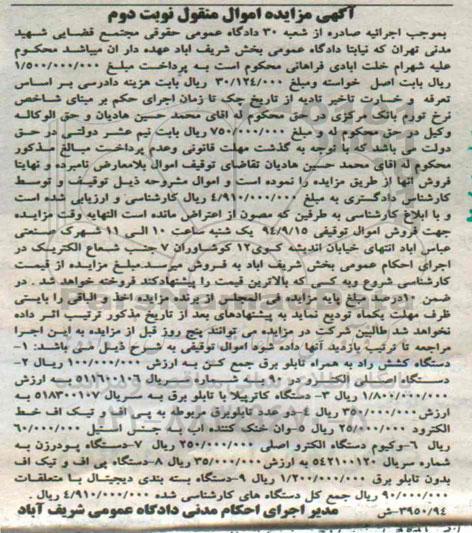 آگهی مزایده اموال منقول نوبت دوم
بموجب اجرائیه صادره از شعبه ۳۰ دادگاه عمومی حقوقی مجتمع قضایی شهید
مدنی تهران که نیابتا دادگاه عمومی بخش شریف اباد عهده دار ان میباشد محکوم
علیه شهرام خلت ابادی فراهانی محکوم است به پرداخت مبلغ ۱/۵۰۰/۰۰۰/۰۰۰
ریال بابت اصل خواسته ومبلغ ۳۰/۱۲۴/۰۰۰ ریال بابت هزینه دادرسی بر اساس
تعرفه وخسارت تاخیر تادیه از تاریخ چک تا زمان اجرای حکم بر مبنای شاخص
نرخ تورم بانک مرکزی در حق محکوم له اقای محمد حسین هادیان و حق الوکاله
وکیل در حق محکوم له و مبلغ ۷۵۰/۰۰۰/۰۰۰ ریال بابت نیم عشر دولتی در حق
دولت می باشد . با توجه به گذشت مهلت قانونی وعدم پرداخت مبالغ مذکور
محکوم له اقای محمد حسین هادیان تقاضای توقیف اموال بلامعارض نامبرده و نهایتا
فروش آنها از طریق مزایده را نموده است و اموال مشروحه ذیل توقیف و توسط
کارشناس دادگستری به مبلغ ۴/۹۱۰/۰۰۰/۰۰۰ ریال کارشناسی و ارزیابی شده است
و با ابلاغ کارشناسی به طرفین که مصون از اعتراض مانده است النهایه وقت مزایده
جهت فروش اموال توقیفی ۹۴/۹/۱۵ یک شنبه ساعت ۱۰ الی ۱۱ شهرک صنعتی
عباس اباد انتهای خیابان اندیشه کوی۱۲ کوشاوران ۷ جنب شعاع الکتریک در
اجرای احکام عمومی بخش شریف اباد به فروش میرسد.مبلغ مزایده از قیمت
کارشناسی شروع وبه کسی که بالاترین قیمت را پیشنهادکند فروخته خواهد شد . در
ضمن ۱۰درصد مبلغ پایه مزایده فی المجلس از برنده مزایده اخذ و الباقی را بایستی
ظرف مهلت یکماه تودیع نماید به پیشنهادهای بعد از تاریخ مذکور ترتیب اثر داده
نخواهد شد طالبین شرکت در مزایده می توانند پنج روز قبل از مزایده به این اجرا
مراجعه تا ترتیب بازدید آنها داده شود اموال توقیفی به شرح ذیل می باشند: ۱-
دستگاه کشش راد به همراه تابلو برق جمع کن به ارزش ۱۰۰/۰۰۰/۰۰۰ ریال ۲-
دستگاه اصلی الکترود به شماره سریال ۵۱۱۶۰۱۰۶ به ارزش
۱/۸۰۰/۰۰۰/۰۰۰ ریال ۳- دستگاه کاترپیلا با تابلو برق به سریال ۵۱۸۳۰۰۱۰۷ به
ارزش ۳۵۰/۰۰۰/۰۰۰ ریال ۴-دو عدد تابلوبرق مربوطه به پی اف و تیک اف خط
الکترود ۲۵/۰۰۰/۰۰۰ ریال ۵-وان خنک کننده اب ۶۰/۰۰۰/۰۰۰
ریال ۶-وکیوم دستگاه الکترو اصلی ۲۵۰/۰۰۰/۰۰۰ ریال ۷-دستگاه پودرزن به
شماره سریال ۵۴۲۱۰۰۱۲۰ به ارزش ۳۵/۰۰۰/۰۰۰ ریال ۸-دستگاه پی اف و تیک اف
بدون تابلو برق ۱/۲۰۰/۰۰۰/۰۰۰ ریال ۹-دستگاه بسته بندی دیجیتال با متعلقات
۹۰/۰۰۰/۰۰۰ ریال جمع کل دستگاه های کارشناسی شده ۴/۹۱۰/۰۰۰/۰۰۰ ریال .
۳۹۵۰/۹۴-ش مدیر اجرای احکام مدنی دادگاه عمومی شریف آباد